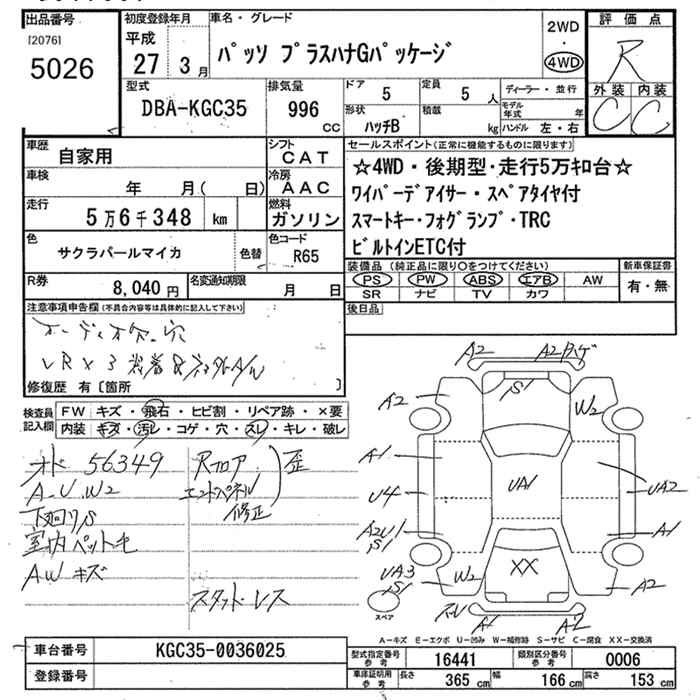 出品番号
[2076]
5026
初度登録年月
平成
27 3 月
車名・グレード
パッソ プラスハナGパッケージ
2WD
・
4WD
評価点
R
外装 内装
C C
型式
DBA-KGC35
排気量
996
CC
ドア
5
定員
5 人
ディーラー・並行
形状
ハッチB
積載
kg
モデル年式 年
ハンドル 左・右
車歴
自家用
シフト
CAT
車検
年 月( 日)
冷房
AAC
走行
5万6千348 km
燃料
ガソリン
色
サクラパールマイカ
色替
色コード
R65
R券
8,040 円
名変通知期限
月 日
セールスポイント(正常に機能するものに限ります)
☆4WD・後期型・走行5万キロ台☆
ワイパーデアイサー・スペアタイヤ付
スマートキー・フォグランプ・TRC
ビルトインETC付
装備品(純正品に限り○をつけてください)
PS PW ABS エアB AW
SR ナビ TV カワ
新車保証書
有・無
後日品
注意事項申告欄(不具合内容等は具体的に記入して下さい)
オーディオ欠、穴
修復歴 有〔箇所 〕
検査員記入欄
FW キズ・飛石・ヒビ割・リペア跡・×要
内装 キズ・汚レ・コゲ・穴・スレ・キレ・破レ
オド 56349
A.U.W2
下廻りS
室内ペット毛
AWキズ
Rフロア
エンドパネル
歪
修正
スタッドレス
A2 A2カケ
S1
A2 W2
A1
U4 UA1 UA2
A2U1 A1
S1
UA3 XX
S1 W2 A2
スレ
A1 A2
スペア
A-キズ E-エクボ U-凹み W-補修跡 S-サビ C-腐食 XX-交換済
車台番号
KGC35-0036025
登録番号
型式指定番号参考
16441
類別区分番号参考
0006
車庫証明用参考
長さ 365 cm 幅 166 cm 高さ 153 cm